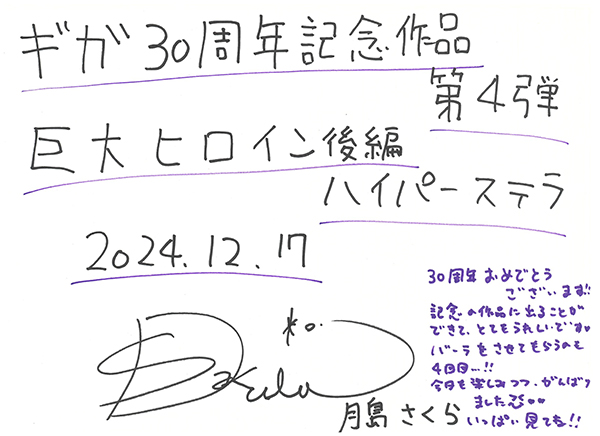 ギガ30周年記念作品
第4弾
巨大ヒロイン後編
ハイパーステラ
2024.12.17
30周年おめでとう
ございます!!
記念の作品に出ることが
できて、とてもうれしいです♡
バーラをさせてもらうのも
4回目…!!
今日も楽しみつつ、がんばり
ました
いっぱい見てね!!
Sakura
月島さくら